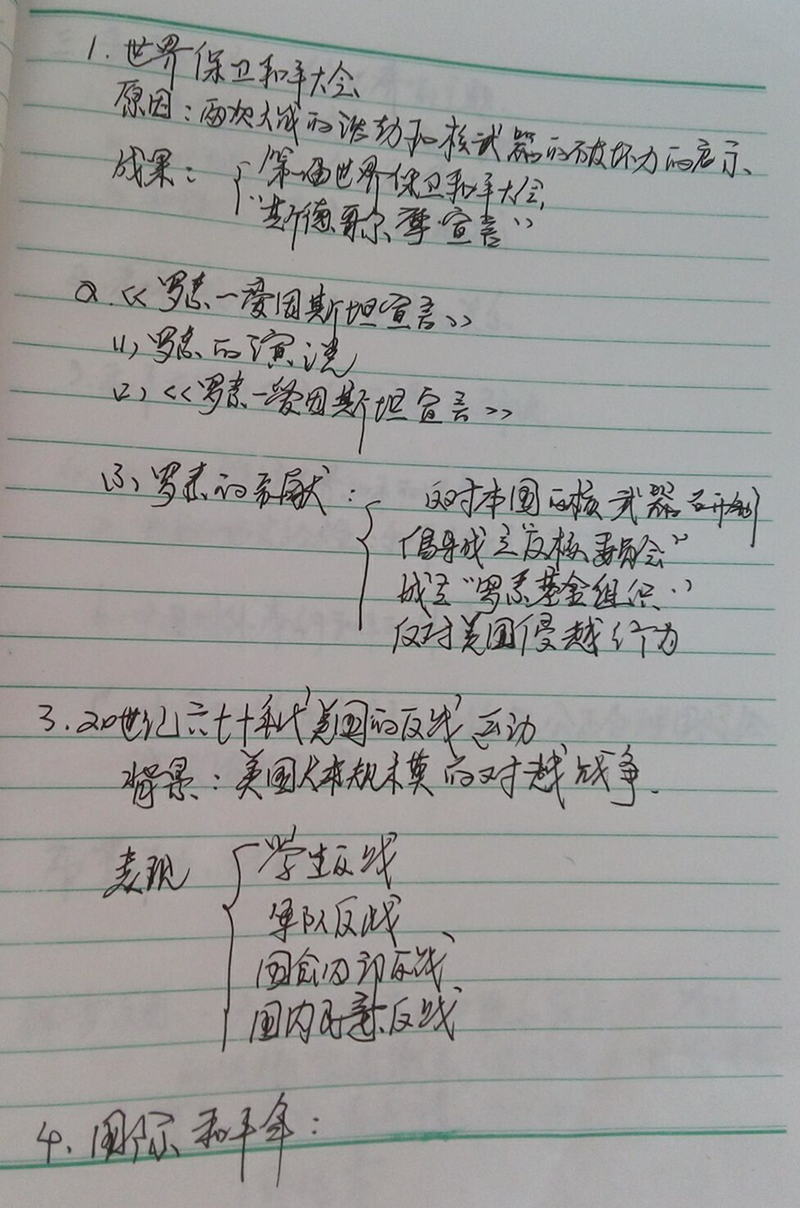 1. 世界保卫和平大会
原因：两次大战的波动和核武器的破坏力的启示、
成果：第一届世界保卫和平大会，
“斯德哥尔摩宣言”
2.《罗素—爱因斯坦宣言》
(1) 罗素的演说
(2)《罗素—爱因斯坦宣言》
(3) 罗素的贡献：对本国的核武器
倡导成立“反核委员会”
成立“罗素基金组织”
反对美国侵越行为
3. 20世纪六七十年代“美国的反战”运动
背景：美国大规模的对越战争.
表现 学生反战
军队反战
国会内部反战
国内民意反战
4. 国际和平年：